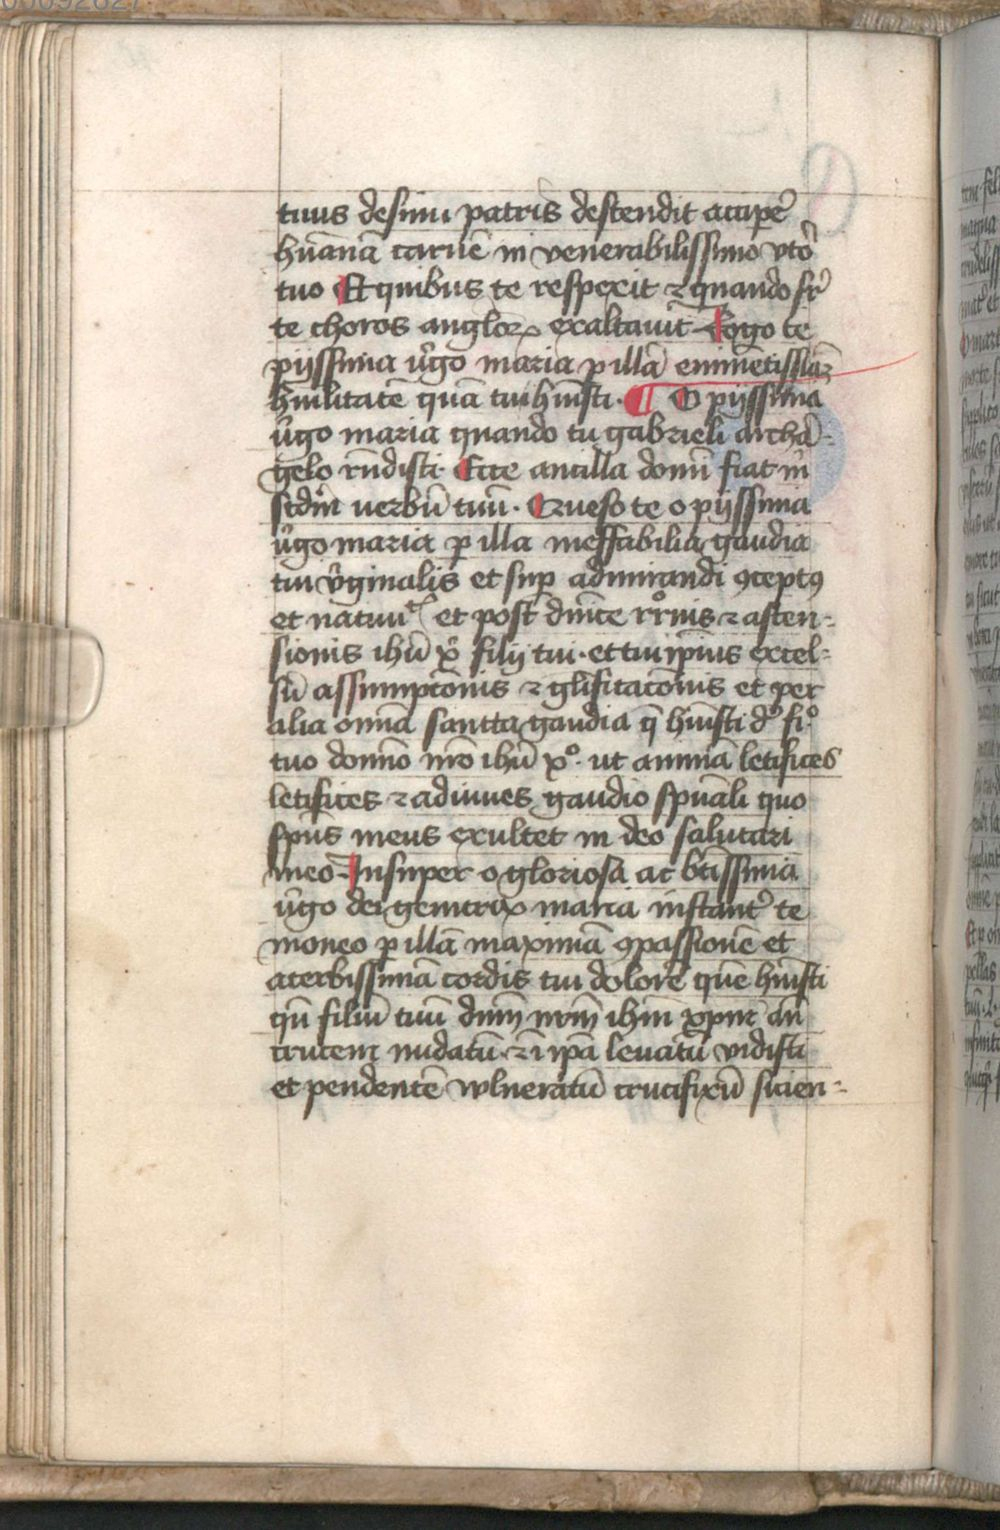 tuus de sinu patris descendit accipe᷑
hūanā carnē in venerabilissimo vt̾o
tuo Et quibus te respexit ⁊ quando sr̄
te choros anglorꝝ exaltauit Rogo te
piissima v̾go maria ꝑ illā eminētissiāꝫ
hūilitatē quā tu hūisti ¶ O piissima
v̾go maria quando tu gabrieli archā-
gelo rn̄disti Ecce ancilla domī fiat m̄
scdm̄ uerbū tuū Queso te o piissima
v̾go maria ꝑ illa ineffabilia gaudia
tui v̾ginalis et suꝑ admirandi ꝯceptꝰ
et nātiuitꝭ et post dmīce rr̄onis ⁊ ascen-
sionis ihū xp̄i filij tui et tui ipīus excel-
sū assumptōnis ⁊ glīficatōnis et per
alia om̄ia sancta gaudia q̄ hūisti dͦ fiͦ
tuo domīo nr̄o ihū xͦ ut animā letifices
letifices ⁊ adiuues gaudio spūali quo
spūs meus exultet in deo salutari
meo Insuper o gloriosa ac btīssima
v̾go dei genitrix maria instant᷑ te
moneo ꝑ illā maximā ꝯpassionē et
acerbissimā cordis tui dolorē quē hūisti
qn̄ filiū tuū dnm̄ nrm̄ ihm̄ xpm̄ an̄
crucem nudatū ⁊ ī ip̄a leuatū vidisti
et pendentē vulneratū crucifixū sicien-